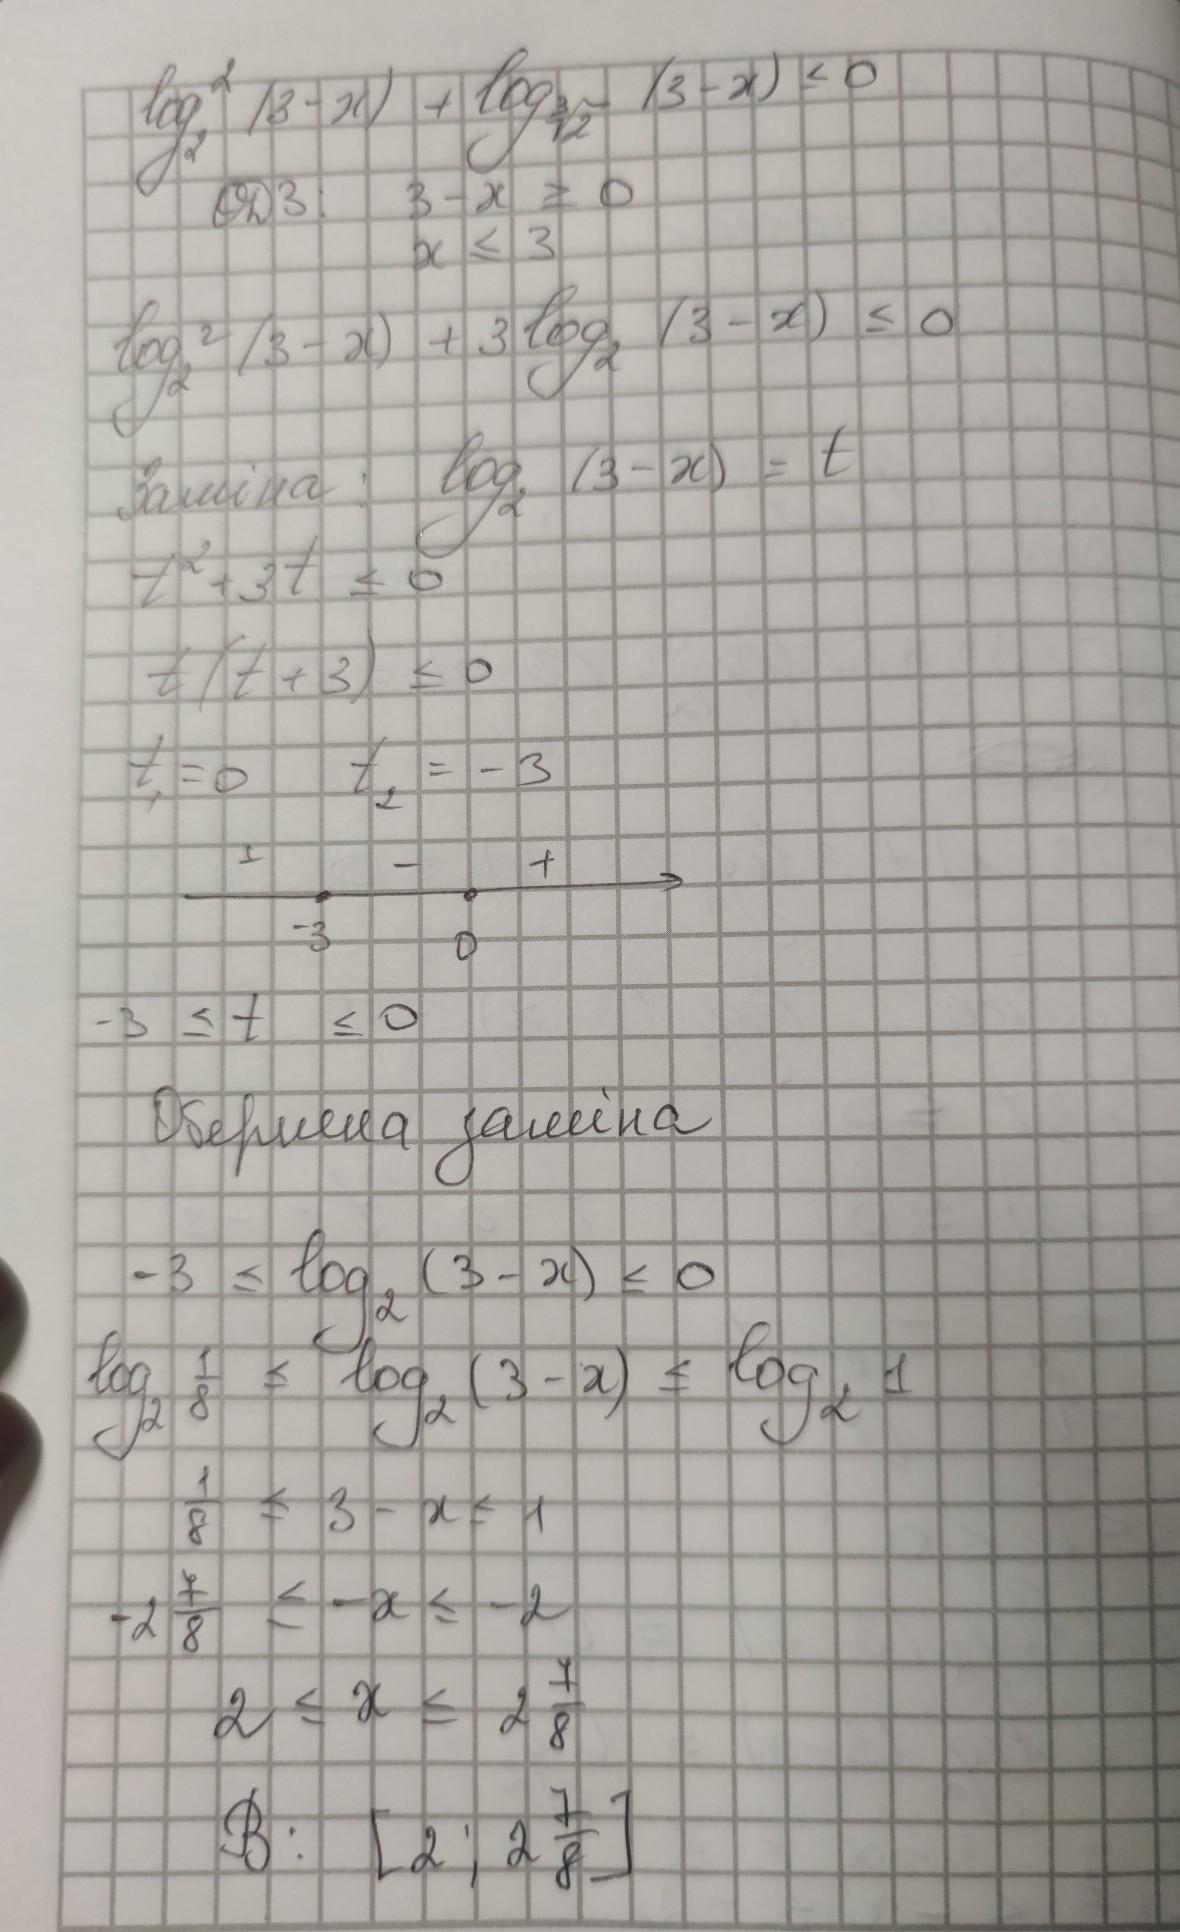 log₂² (3-x) + log_∛2 (3-x) ≤ 0
ОДЗ: 3-x ≥ 0
x ≤ 3
log₂² (3-x) + 3 log₂ (3-x) ≤ 0
Заміна: log₂ (3-x) = t
t² + 3t ≤ 0
t (t+3) ≤ 0
t₁ = 0 t₂ = -3
+ - +
-3 0
-3 ≤ t ≤ 0
Обернена заміна
-3 ≤ log₂ (3-x) ≤ 0
log₂ 1/8 ≤ log₂ (3-x) ≤ log₂ 1
1/8 ≤ 3-x ≤ 1
-2 7/8 ≤ -x ≤ -2
2 ≤ x ≤ 2 7/8
В: [2; 2 7/8]